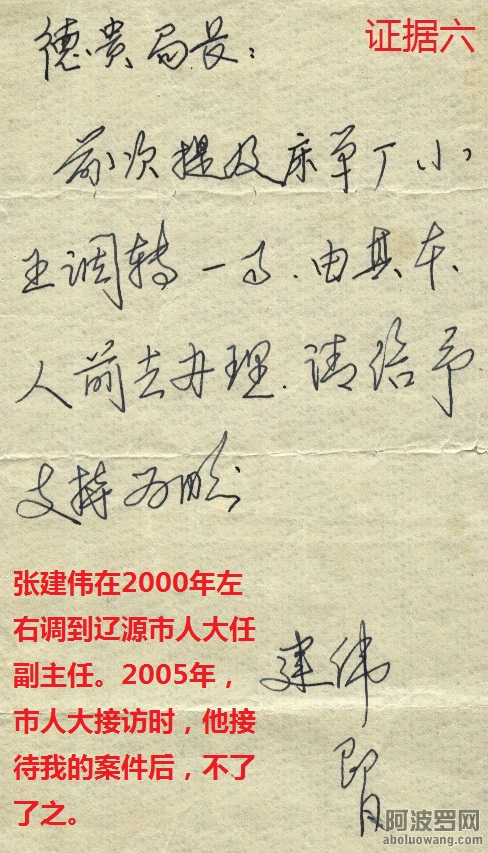 证据六
德贵局长：
前次提及床单厂小
王调转一事、由其本
人前去办理、请给予
支持为盼
建伟
即日
张建伟在2000年左
右调到辽源市人大任
副主任。2005年，
市人大接访时，他接
待我的案件后，不了
了之。
阿波罗网
aboluowang.com